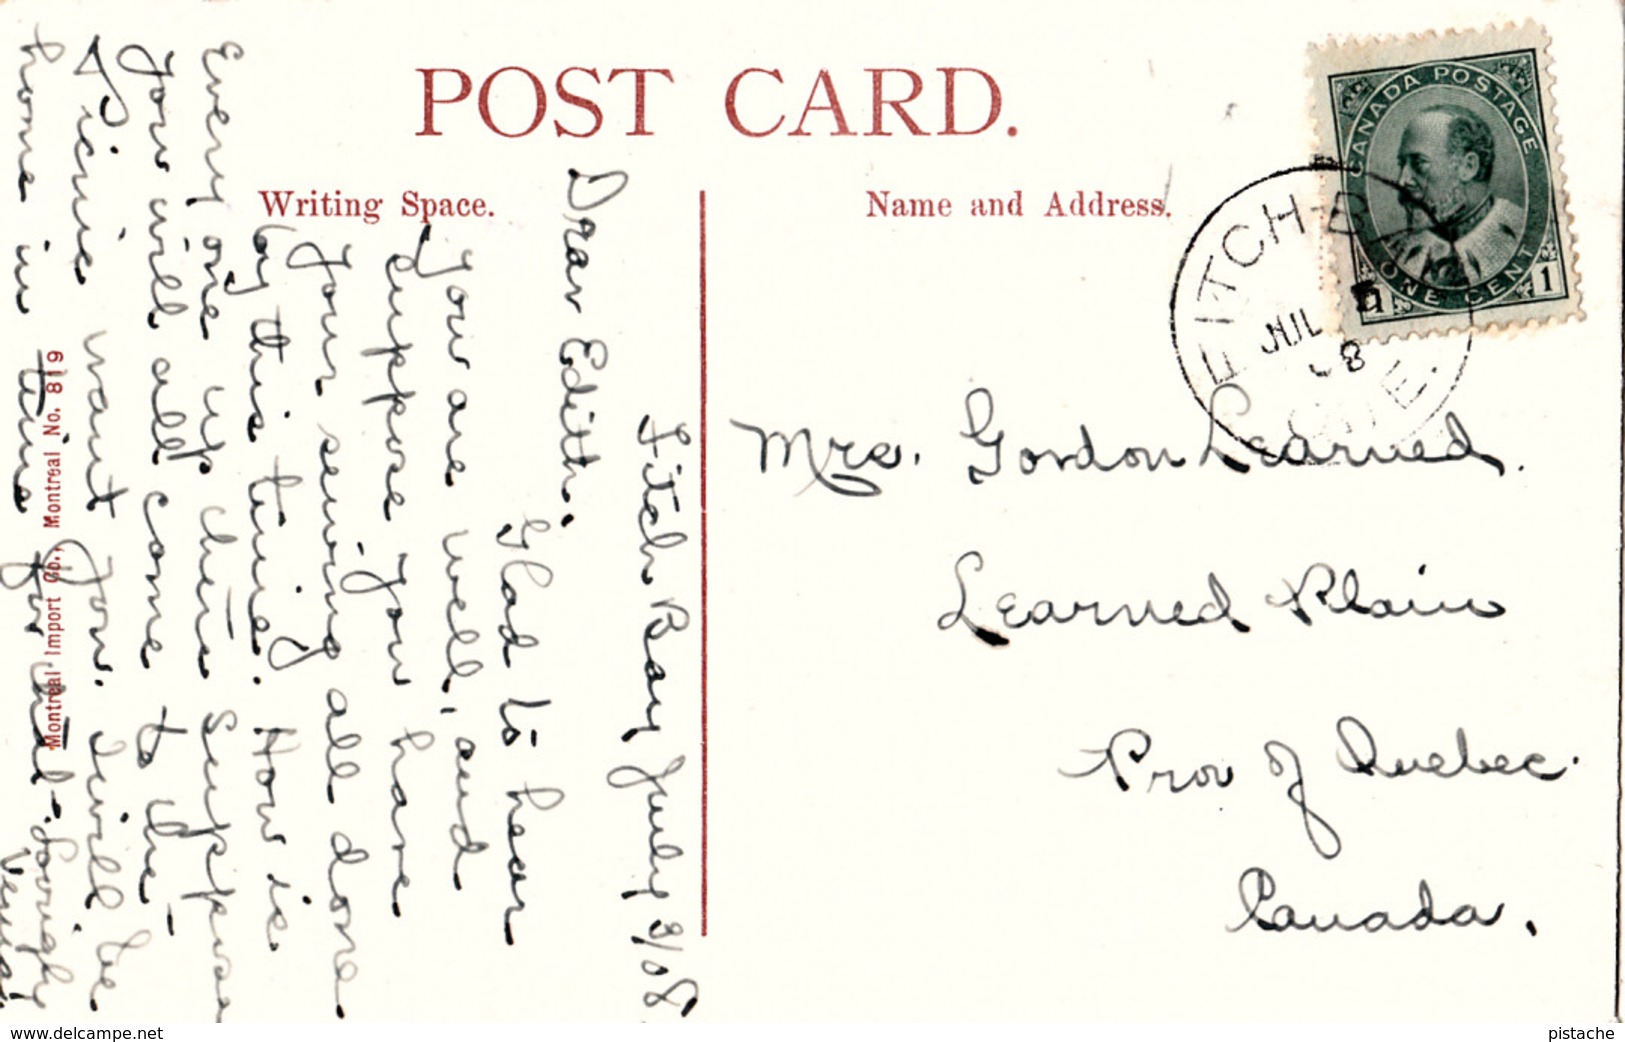 POST CARD.
Writing Space.
Name and Address.
CANADA POSTAGE
ONE CENT
1 1
FITCH BAY
JUL
08
QUE.
Mrs. Gordon Learned.
Learned Plain
Prov of Quebec.
Canada.
Fitch Bay July 3/08
Dear Edith.
Glad to hear
you are well, and
suppose you have
your sewing all done
by this time. How is
Every one up there suppose
you will all come to the
Picnic want you. I will be
home in time for that. Lovingly
Montreal Import Co., Montreal No. 819
www.delcampe.net
pistache